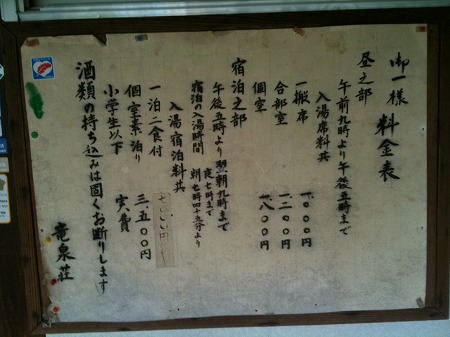 御一様 料金表
昼之部
午前九時より午後五時まで
入湯席料共
一搬席 一、〇〇〇円
合部室 一、二〇〇円
個室 一、八〇〇円
宿泊之部
午後五時より翌朝九時まで
宿泊の入湯時間 夜七時まで
朝七時四十五分より
入湯宿泊料共
一泊二食付
個室素泊り 三、五〇〇円
小学生以下 実費
酒類の持ち込みは固くお断りします
竜泉荘